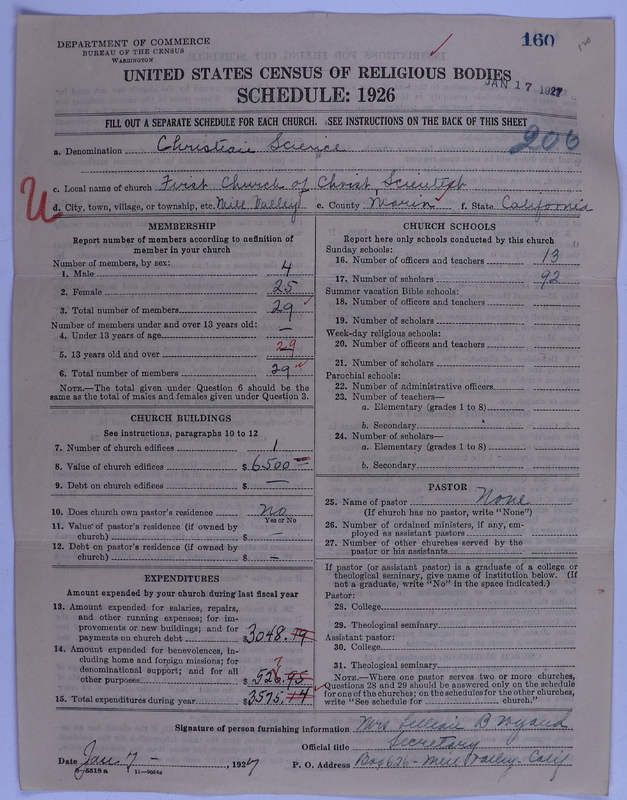 160
DEPARTMENT OF COMMERCE
BUREAU OF THE CENSUS
WASHINGTON
UNITED STATES CENSUS OF RELIGIOUS BODIES
JAN 17 1927
SCHEDULE: 1926
FILL OUT A SEPARATE SCHEDULE FOR EACH CHURCH. SEE INSTRUCTIONS ON THE BACK OF THIS SHEET
206
a. Denomination Christian Science
c. Local name of church First Church of Christ, Scientist
d. City, town, village, or township, etc. Mill Valley e. County Marin f. State California
MEMBERSHIP
Report number of members according to definition of
member in your church
Number of members, by sex:
1. Male 4
2. Female 25
3. Total number of members 29
Number of members under and over 13 years old:
4. Under 13 years of age —
5. 13 years old and over 29
6. Total number of members 29
NOTE.—The total given under Question 6 should be the
same as the total of males and females given under Question 3.
CHURCH BUILDINGS
See instructions, paragraphs 10 to 12
7. Number of church edifices 1
8. Value of church edifices $ 6500
9. Debt on church edifices $ —
10. Does church own pastor's residence No
Yes or No
11. Value of pastor's residence (if owned by
church) $ —
12. Debt on pastor's residence (if owned by
church) $ —
EXPENDITURES
Amount expended by your church during last fiscal year
13. Amount expended for salaries, repairs,
and other running expenses; for im-
provements or new buildings; and for
payments on church debt $ 3048.19
14. Amount expended for benevolences, in-
cluding home and foreign missions; for
denominational support; and for all
other purposes $ 526.95
7
15. Total expenditures during year $ 3575.14
CHURCH SCHOOLS
Report here only schools conducted by this church
Sunday schools:
16. Number of officers and teachers 13
17. Number of scholars 92
Summer vacation Bible schools:
18. Number of officers and teachers
19. Number of scholars
Week-day religious schools:
20. Number of officers and teachers
21. Number of scholars
Parochial schools:
22. Number of administrative officers
23. Number of teachers—
a. Elementary (grades 1 to 8)
b. Secondary
24. Number of scholars—
a. Elementary (grades 1 to 8)
b. Secondary
PASTOR
25. Name of pastor None
(If church has no pastor, write "None")
26. Number of ordained ministers, if any, em-
ployed as assistant pastors
27. Number of other churches served by the
pastor or his assistants
If pastor (or assistant pastor) is a graduate of a college or
theological seminary, give name of institution below. (If
not a graduate, write "No" in the space indicated.)
Pastor:
28. College
29. Theological seminary
Assistant pastor:
30. College
31. Theological seminary
NOTE.—Where one pastor serves two or more churches,
Questions 28 and 29 should be answered only on the schedule
for one of the churches; on the schedules for the other churches,
write "See schedule for church."
Signature of person furnishing information Mrs Lillian B
Official title Secretary
Date Jan 7 — , 1927 P. O. Address Box 626 - Mill Valley - Calif
11—9055c